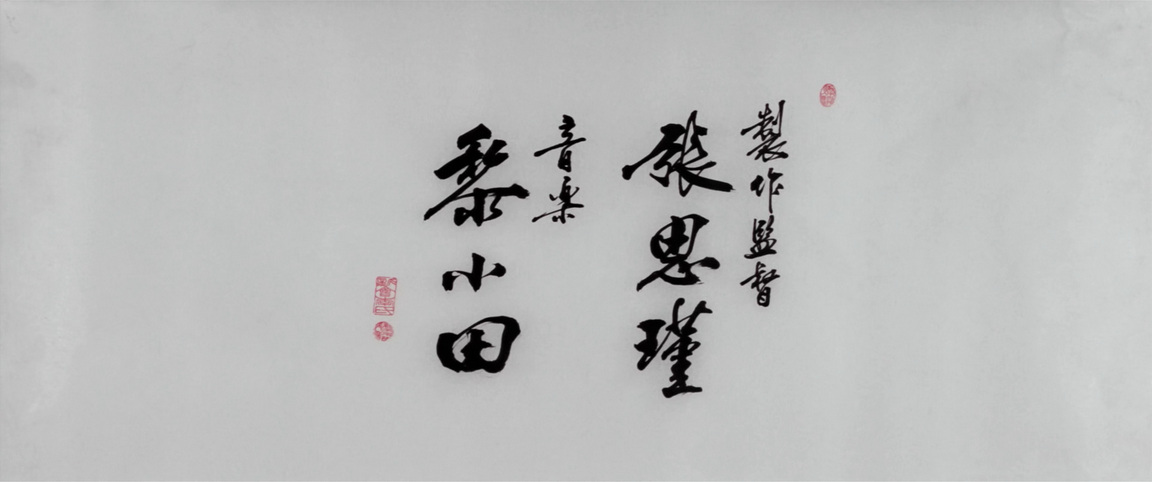 製作監督
張思瑾
音楽
黎小田